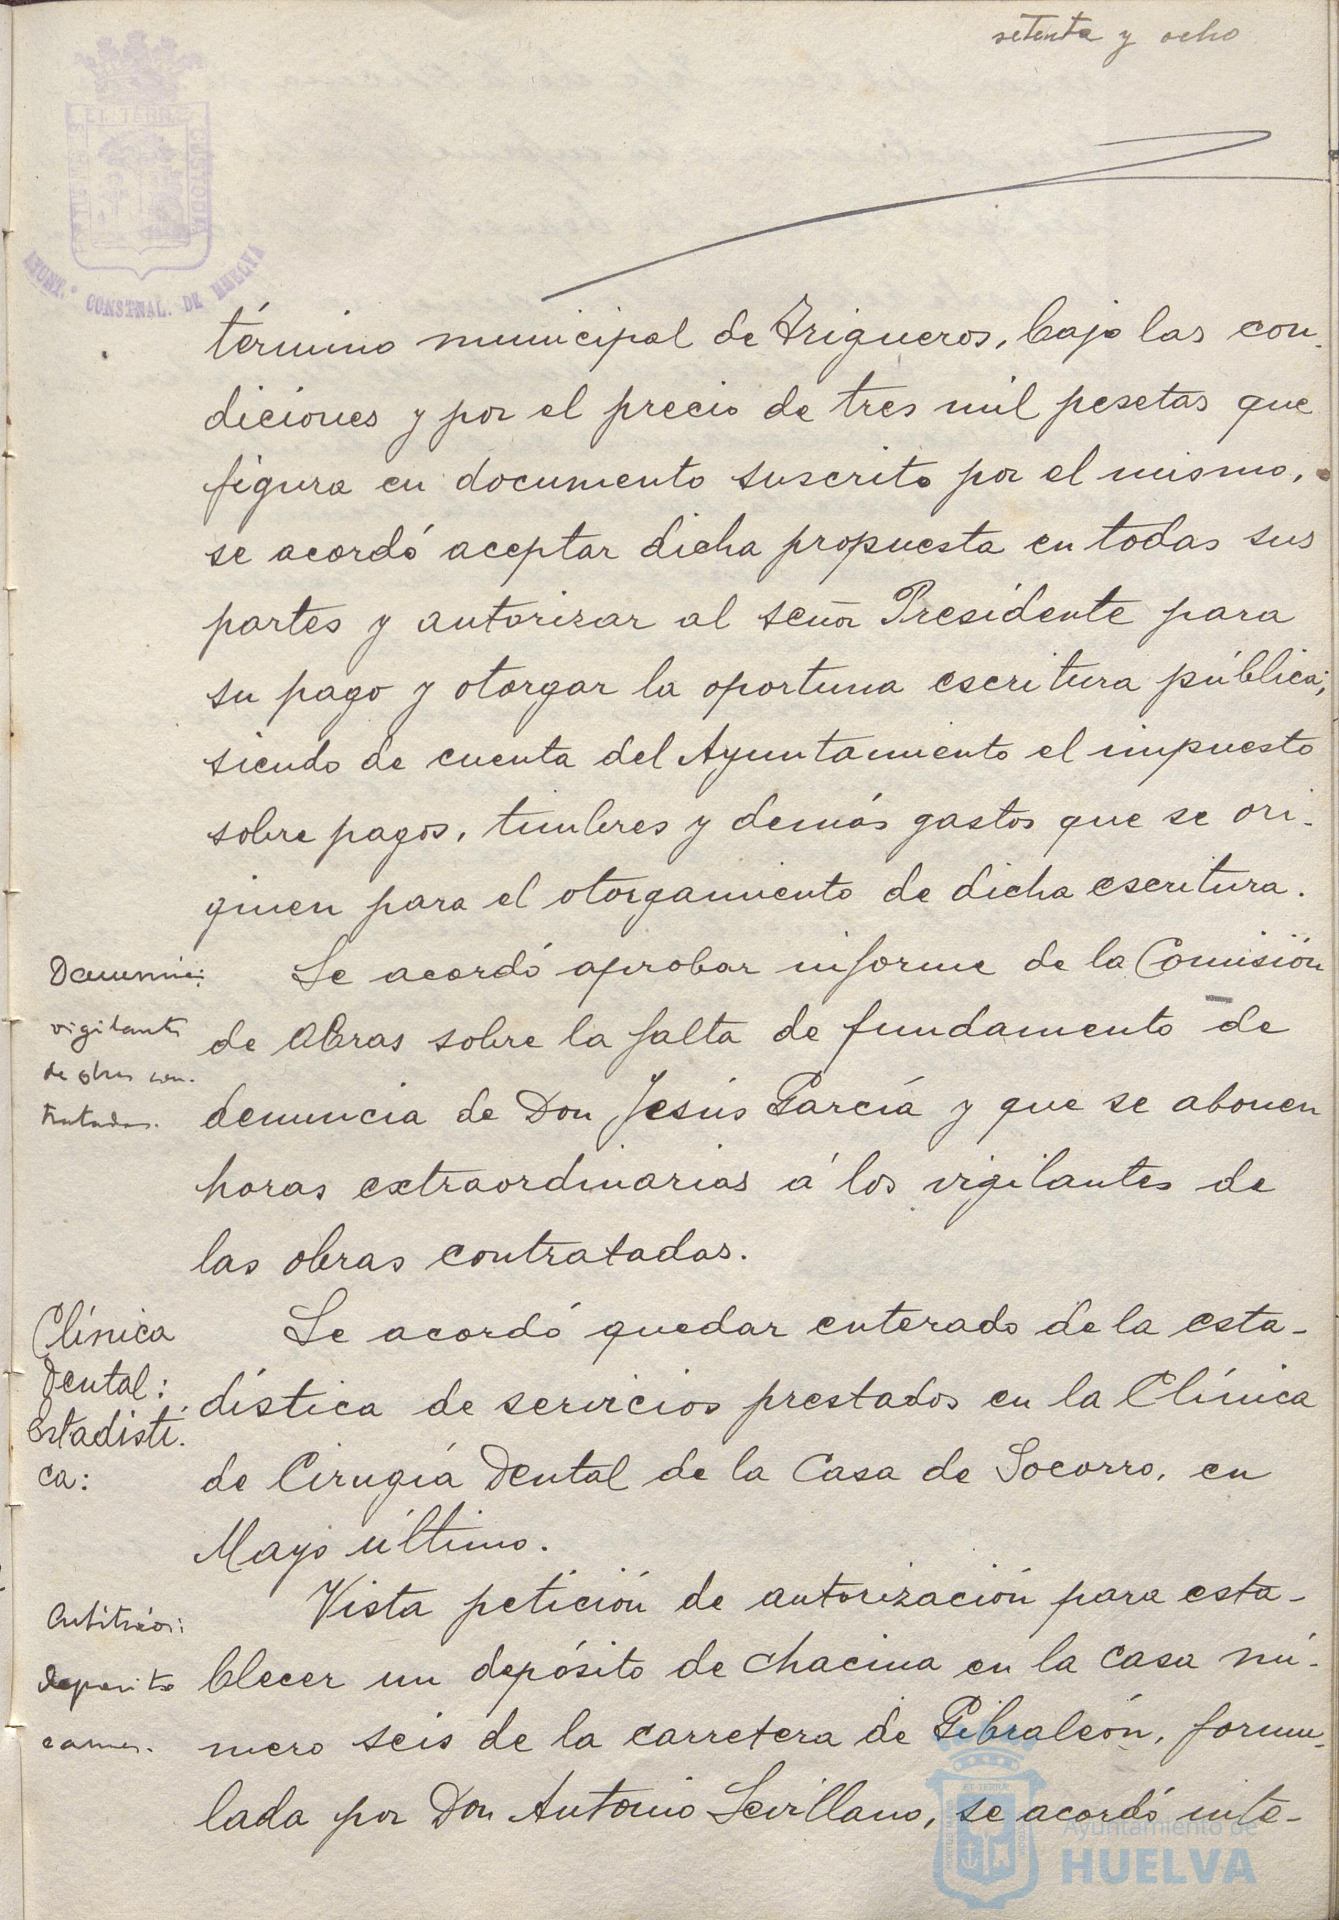 setenta y ocho
AYUNT.º CONSTNAL. DE HUELVA
término municipal de Trigueros, bajo las con-
diciones y por el precio de tres mil pesetas que
figura en documento suscrito por el mismo,
se acordó aceptar dicha propuesta en todas sus
partes y autorizar al señor Presidente para
su pago y otorgar la oportuna escritura pública;
siendo de cuenta del Ayuntamiento el impuesto
sobre pagos, timbres y demás gastos que se ori-
ginen para el otorgamiento de dicha escritura.
Denuncia:
vigilantes
de obras con-
tratadas.
Se acordó aprobar informe de la Comisión
de Obras sobre la falta de fundamento de
denuncia de Don Jesús García y que se abonen
horas extraordinarias á los vigilantes de
las obras contratadas.
Clínica
Dental:
Estadísti-
ca:
Se acordó quedar enterado de la esta-
dística de servicios prestados en la Clínica
de Cirugía Dental de la Casa de Socorro, en
Mayo último.
Arbitrios:
deposito
carnes.
Vista petición de autorización para esta-
blecer un depósito de chacina en la casa nú-
mero seis de la carretera de Gibraleón, formu-
lada por Don Antonio Sevillano, se acordó inte-
Ayuntamiento de
HUELVA